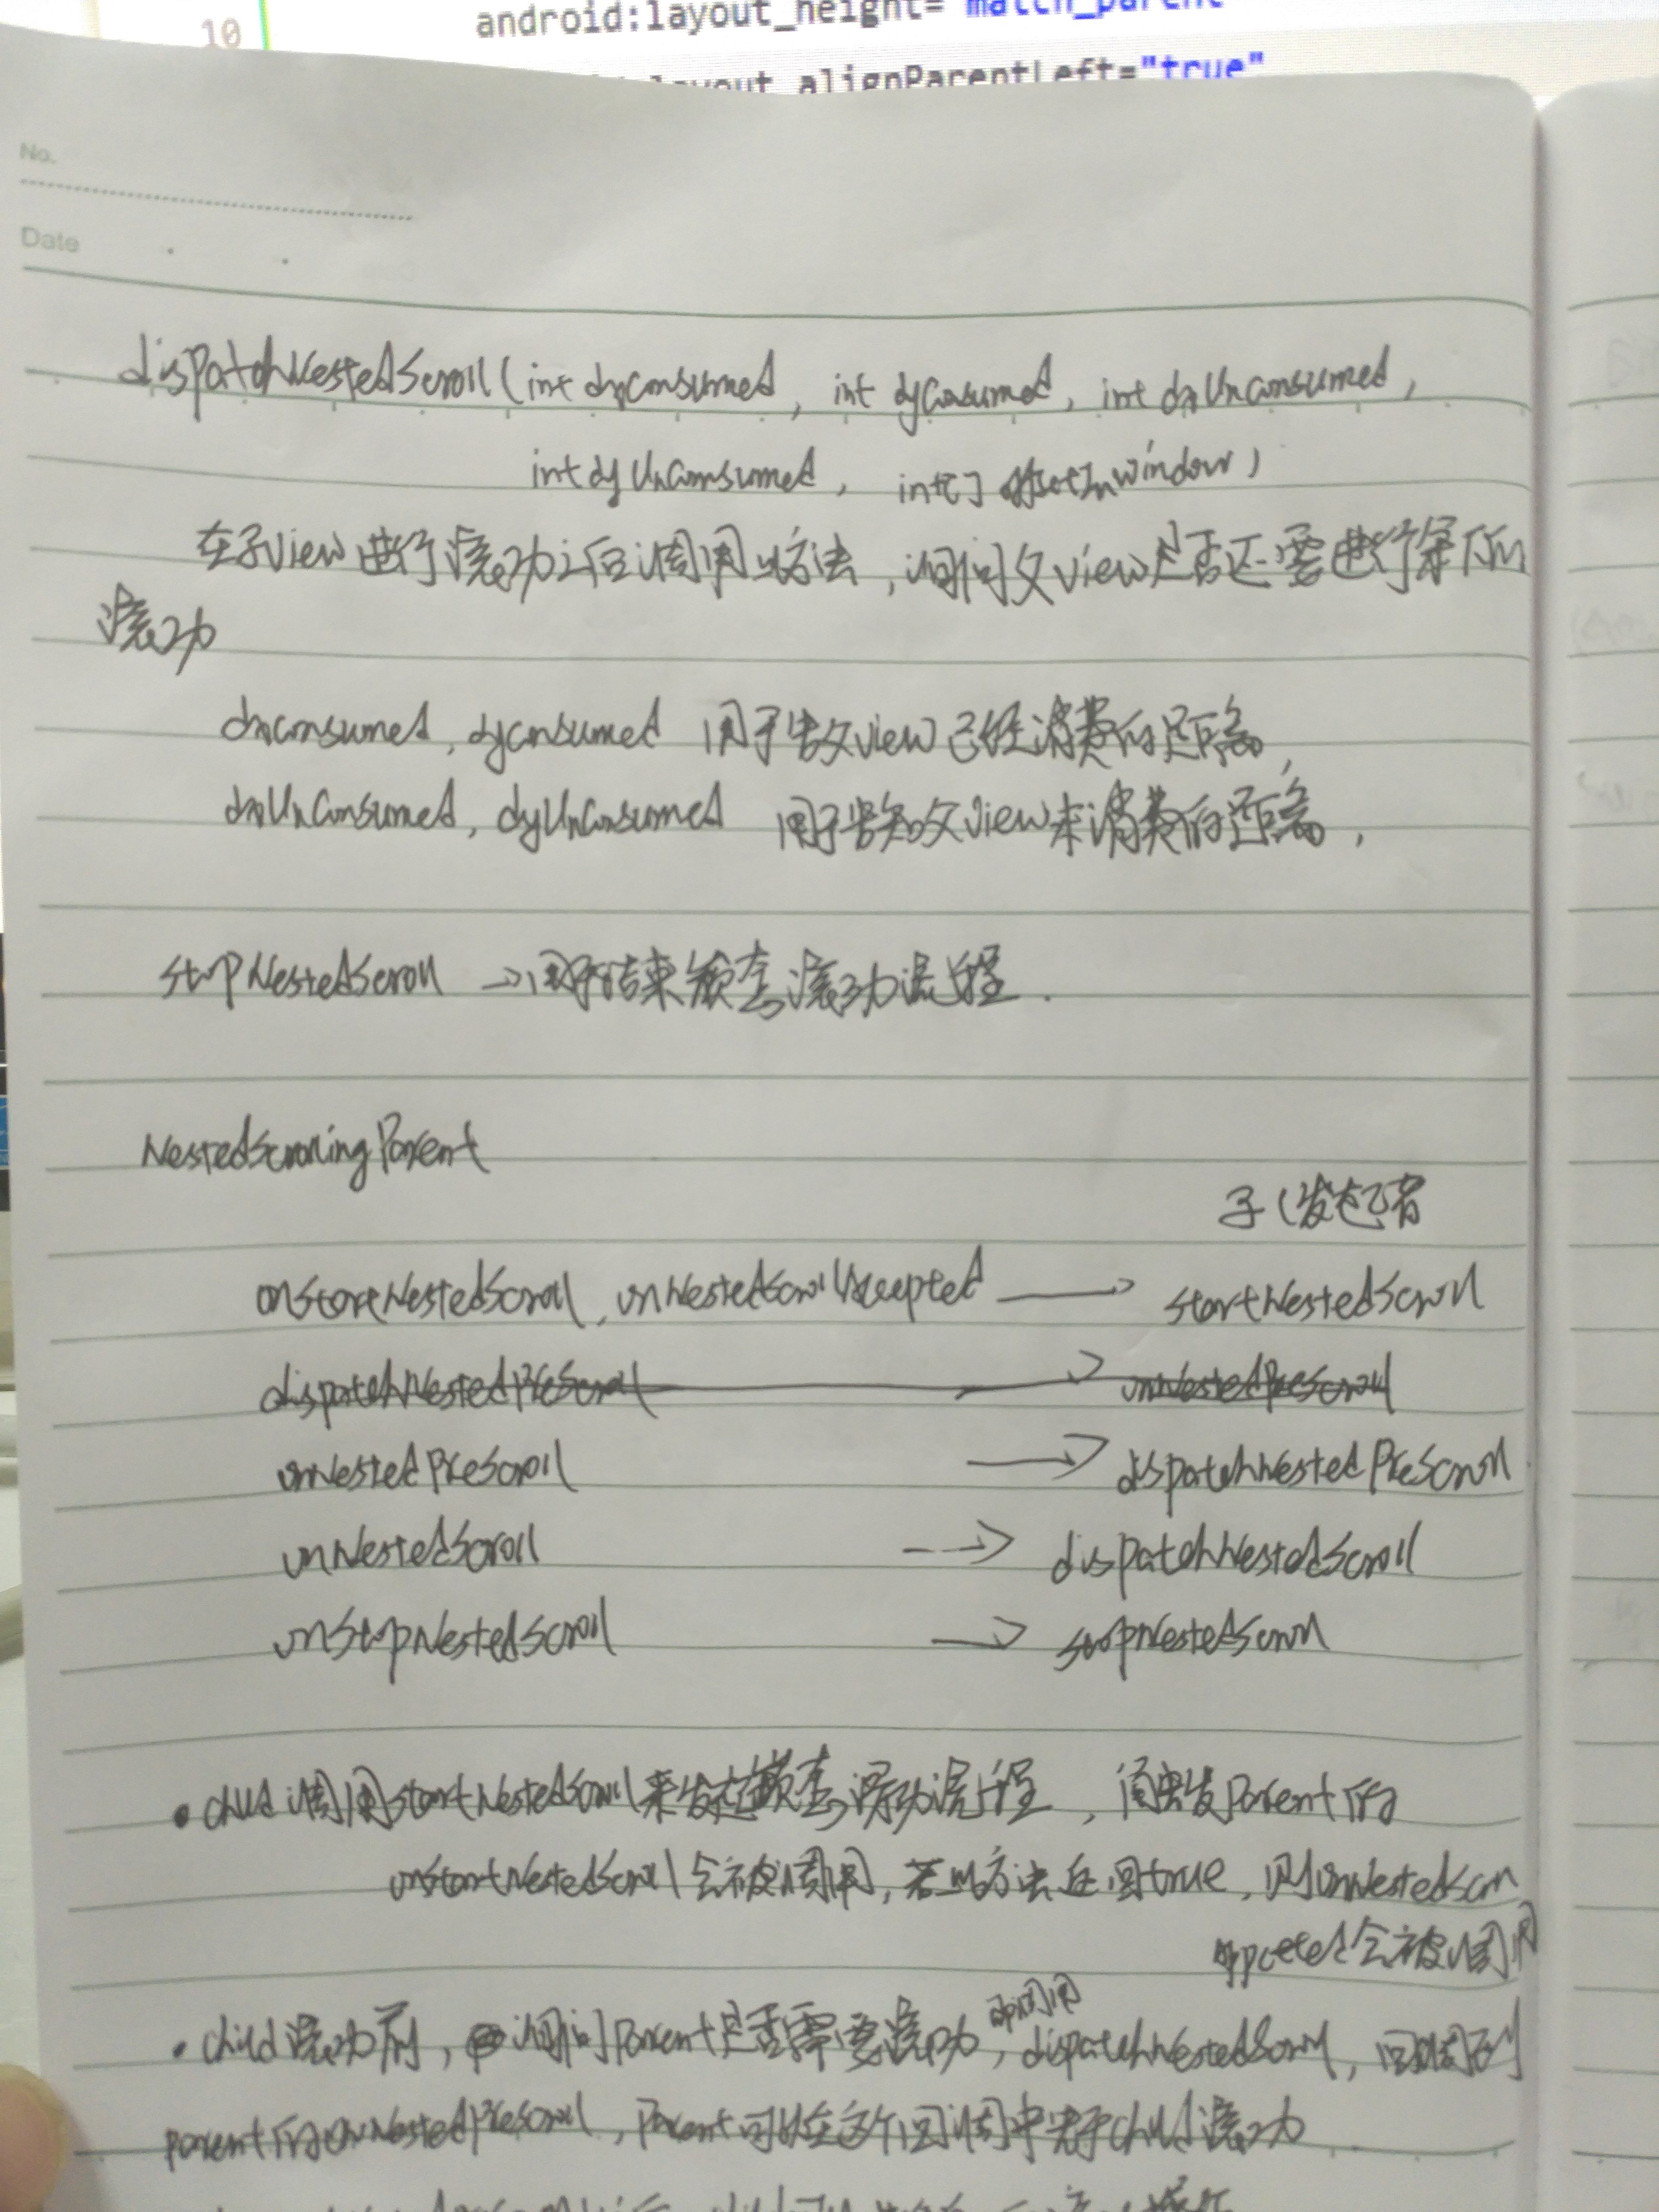 10 android:layout_height="match_parent"
layout_alignParentLeft="true"
No.
Date
dispatchNestedScroll(int dxConsumed, int dyConsumed, int dxUnConsumed,
int dyUnConsumed, int[] offsetInWindow)
在子View进行滚动之后调用此方法,询问父View是否还要进行余下的
滚动
dxConsumed, dyConsumed 用于告父View已经消费的距离,
dxUnConsumed, dyUnConsumed 用于告知父View未消费的距离,
stopNestedScroll →用于结束嵌套滚动流程.
NestedScrollingParent
子(发起者
onStartNestedScroll, onNestedScrollAccepted → startNestedScroll
dispatchNestedPreScroll → onNestedPreScroll
onNestedPreScroll → dispatchNestedPreScroll
onNestedScroll → dispatchNestedScroll
onStopNestedScroll → stopNestedScroll
• child调用startNestedScroll来发起嵌套滚动流程, Parent的
onStartNestedScroll会被调用,若此方法返回true,则onNestedScro
会被调用
• child滚动前, 询问Parent是否需要滚动, 即调用
dispatchNestedScroll, 回调到
parent的onNestedPreScroll, Parent可以在这个回调中先于child滚动